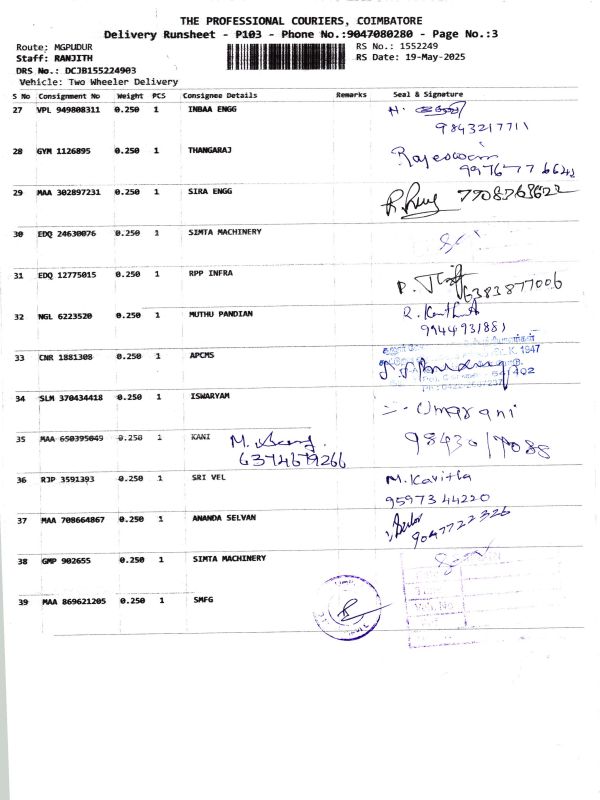 THE PROFESSIONAL COURIERS, COIMBATORE
Delivery Runsheet - P103 - Phone No.:9047080280 - Page No.:3
Route: MGPUDUR
RS No.: 1552249
Staff: RANJITH
RS Date: 19-May-2025
DRS No.: DCJB155224903
Vehicle: Two Wheeler Delivery
S No Consignment No Weight PCS Consignee Details Remarks Seal & Signature
27 VPL 949808311 0.250 1 INBAA ENGG
9843217711
28 GYM 1126895 0.250 1 THANGARAJ
Rajeswari
29 MAA 302897231 0.250 1 SIRA ENGG
30 EDQ 24630076 0.250 1 SIMTA MACHINERY
31 EDQ 12775015 0.250 1 RPP INFRA
6383877006
32 NGL 6223520 0.250 1 MUTHU PANDIAN
9944931881
33 CNR 1881308 0.250 1 APCMS
34 SLM 370434418 0.250 1 ISWARYAM
Umarani
35 MAA 650395049 0.250 1 KANI
6374679266
9843017088
36 RJP 3591393 0.250 1 SRI VEL
M. Kavitha
9597344220
37 MAA 708664867 0.250 1 ANANDA SELVAN
9047722326
38 GMP 902655 0.250 1 SIMTA MACHINERY
39 MAA 869621205 0.250 1 SMFG